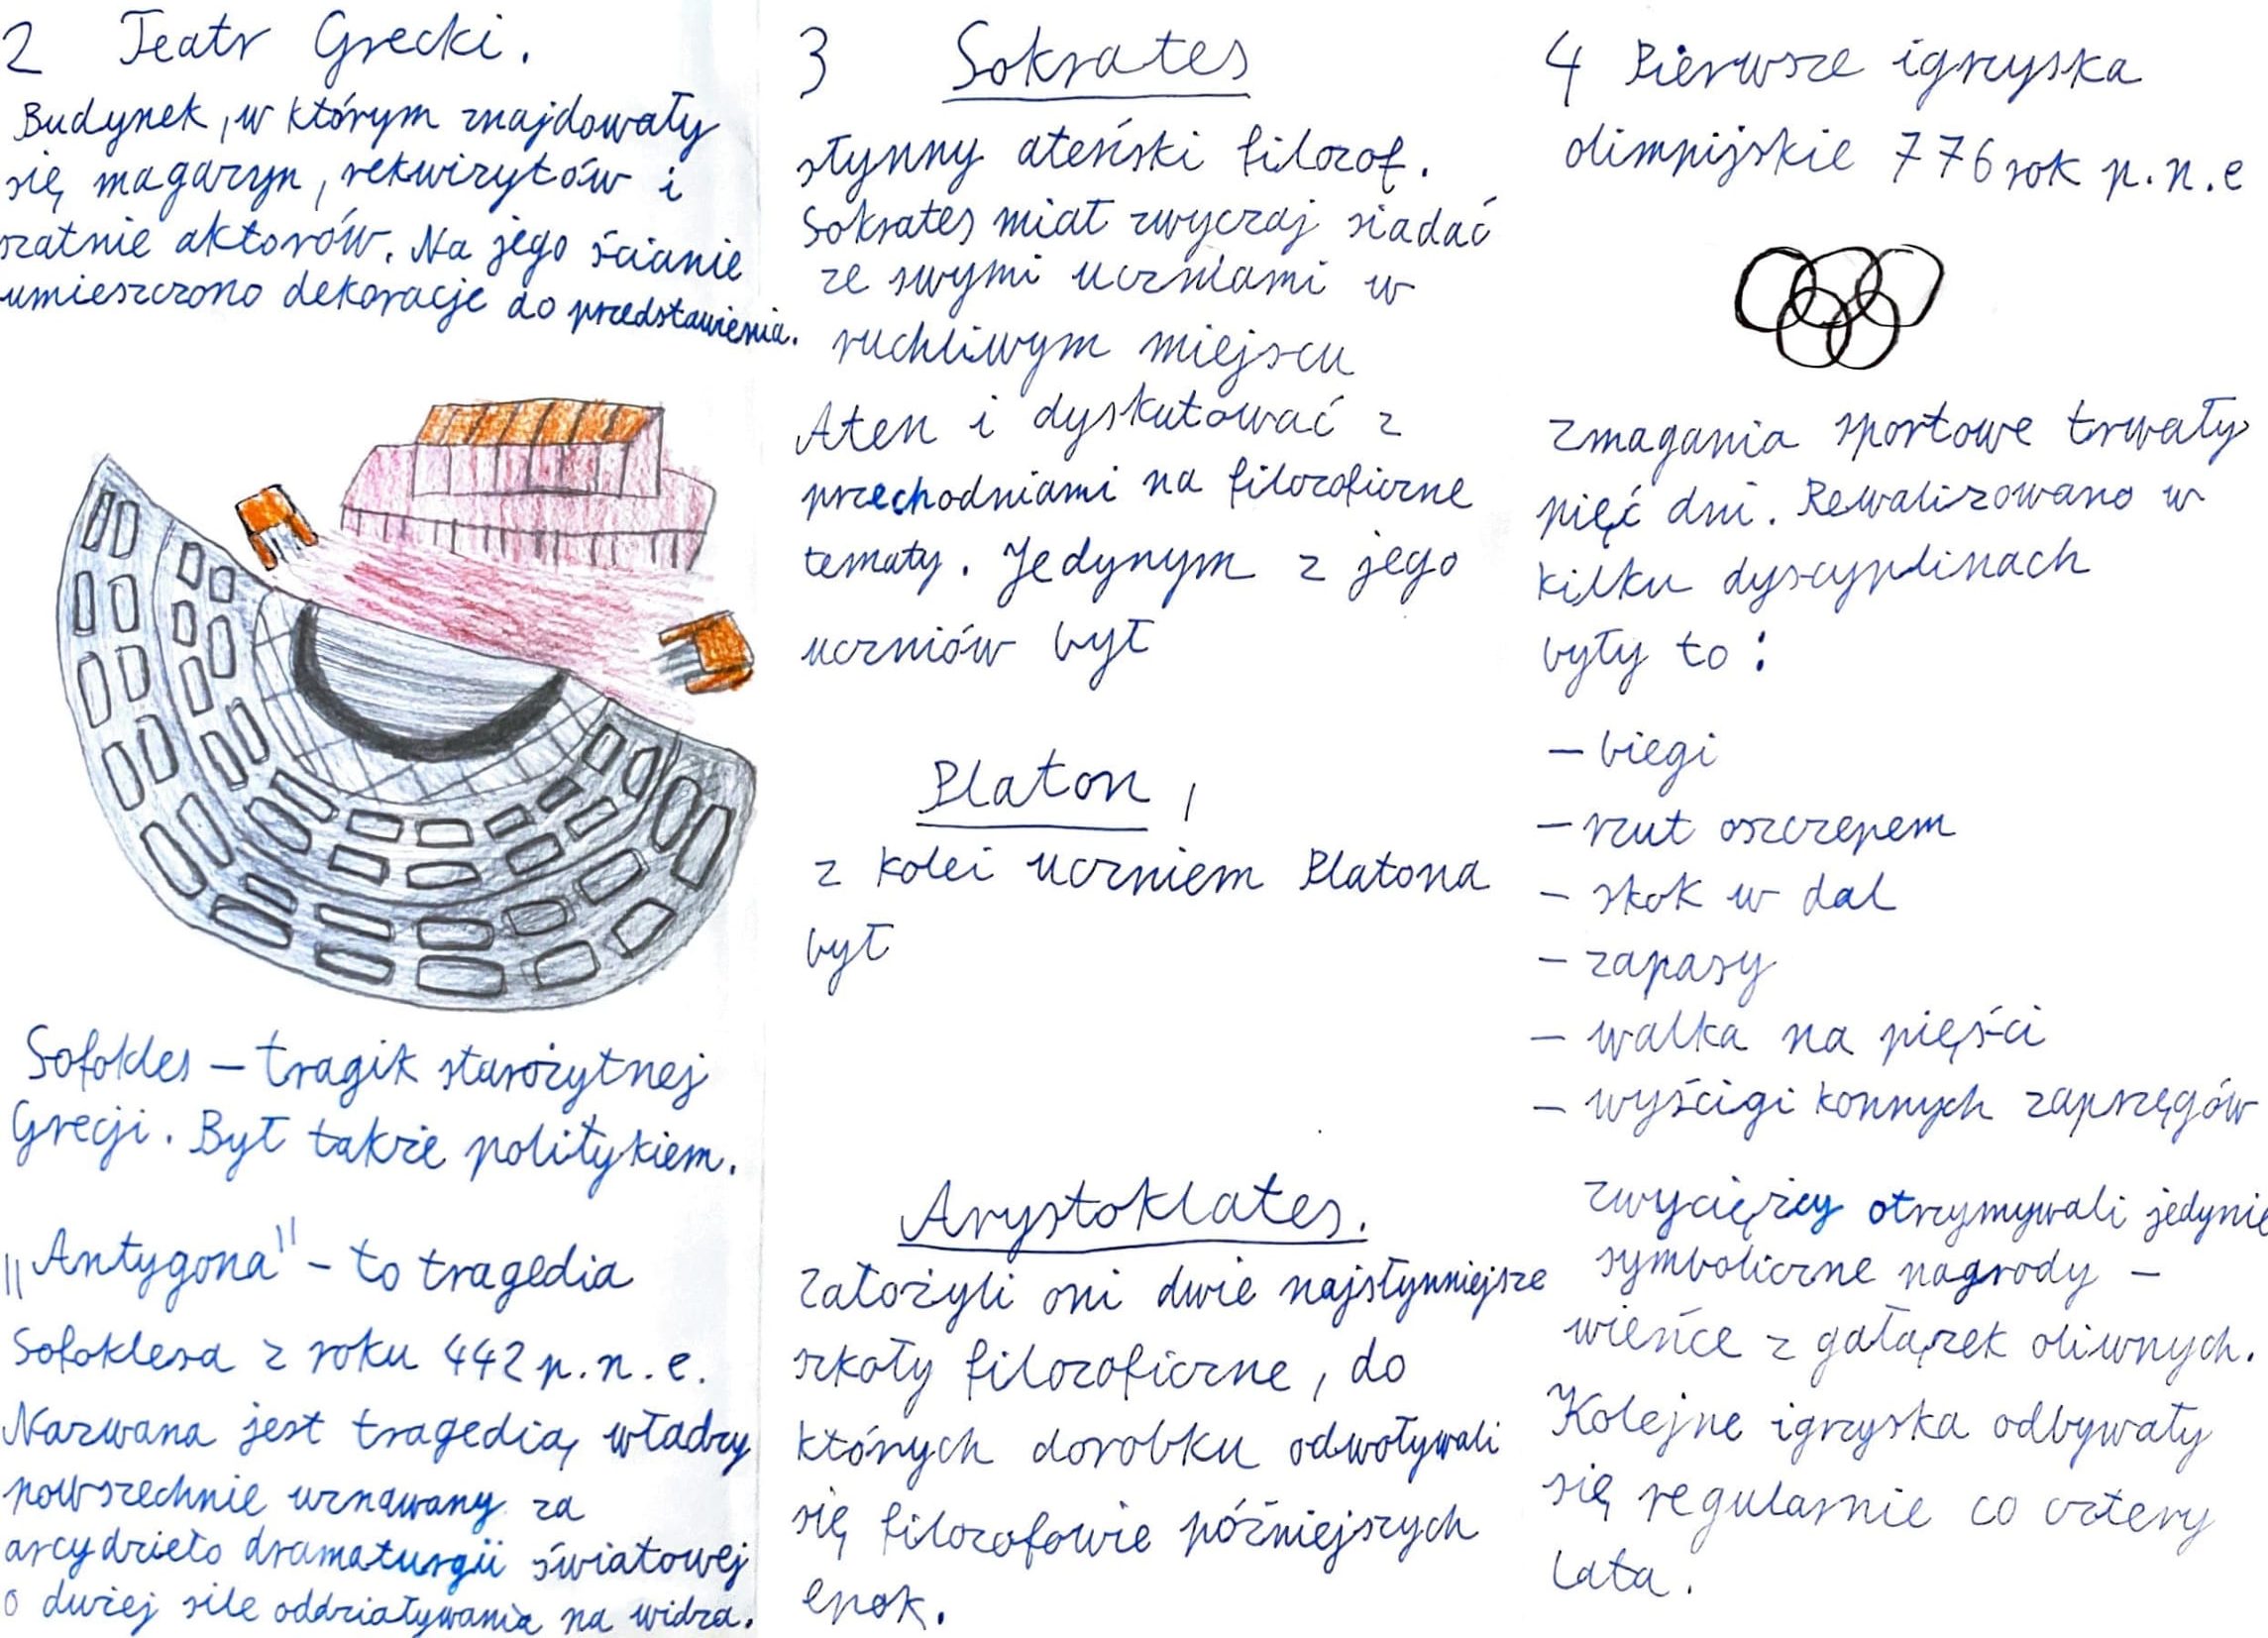 2 Teatr Grecki.
Budynek, w którym znajdowały
się magazyn, rekwizytów i
szatnie aktorów. Na jego ścianie
umieszczono dekoracje do przedstawienia.
Sofokles – tragik starożytnej
Grecji. Był także politykiem.
„Antygona" – to tragedia
Sofoklesa z roku 442 p.n.e.
Nazwana jest tragedią władzy
powszechnie uznawany za
arcydzieło dramaturgii światowej
o dużej sile oddziaływania na widza.
3 Sokrates
słynny ateński filozof.
Sokrates miał zwyczaj siadać
ze swymi uczniami w
ruchliwym miejscu
Aten i dyskutować z
przechodniami na filozoficzne
tematy. Jedynym z jego
uczniów był
Platon,
z kolei uczniem Platona
był
Arystoklates.
Założyli oni dwie najsłynniejsze
szkoły filozoficzne, do
których dorobku odwoływali
się filozofowie późniejszych
epok.
4 Pierwsze igrzyska
olimpijskie 776 rok p.n.e
Zmagania sportowe trwały
pięć dni. Rewalizowano w
kilku dyscyplinach
były to:
– biegi
– rzut oszczepem
– skok w dal
– zapasy
– walka na pięści
– wyścigi konnych zaprzęgów
zwyciężcy otrzymywali jedynie
symboliczne nagrody –
wieńce z gałązek oliwnych.
Kolejne igrzyska odbywały
się regularnie co cztery
lata.